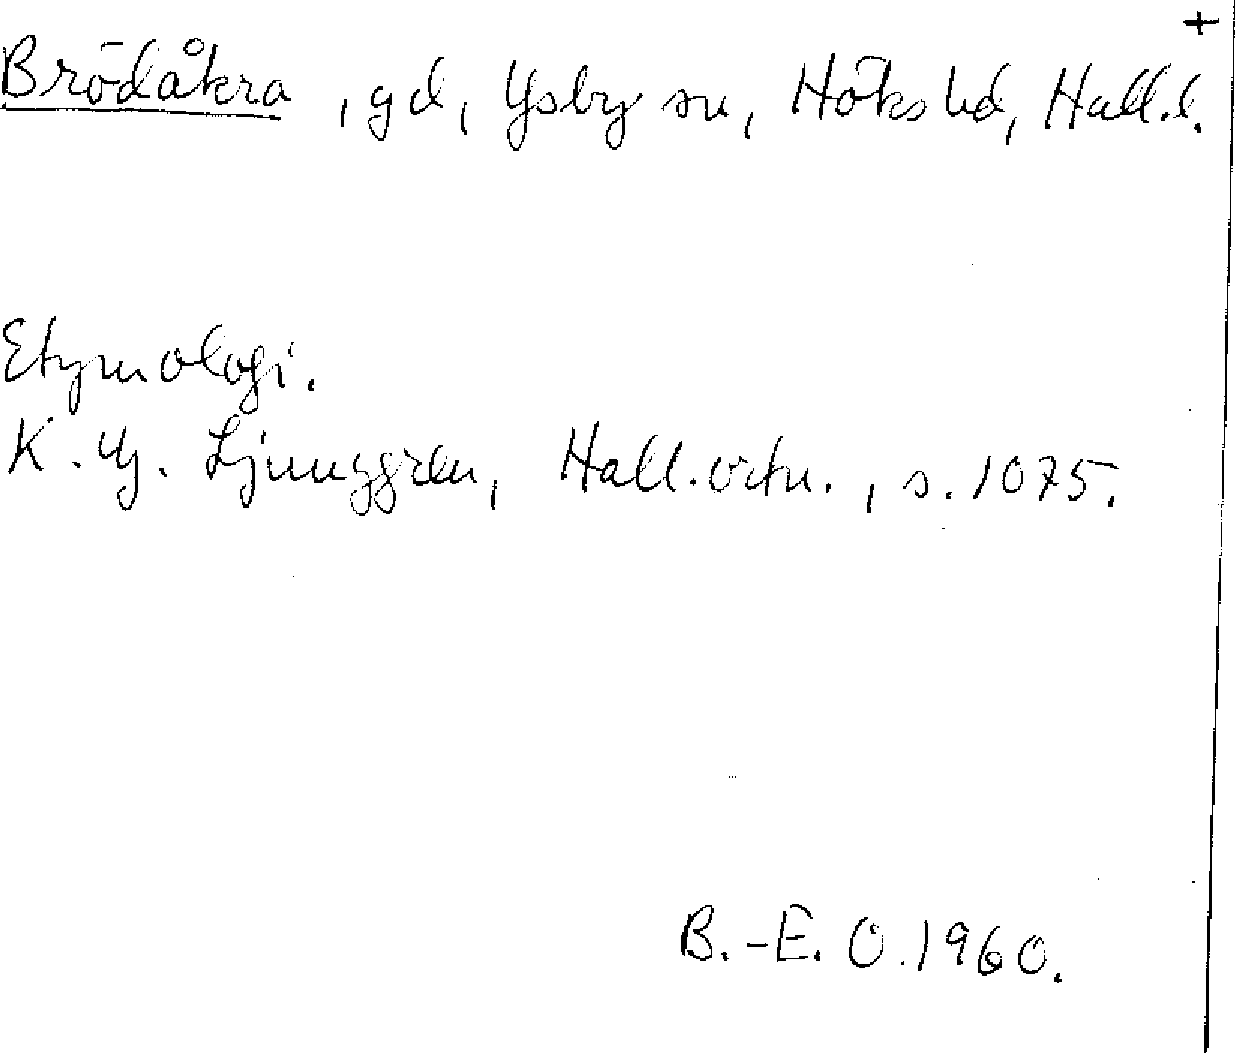 +
Brödåkra, gd, Ysby sn, Höks hd, Hall.l.
Etymologi.
K. G. Ljunggren, Hall.ortn., s. 1075.
B.-E. O. 1960.